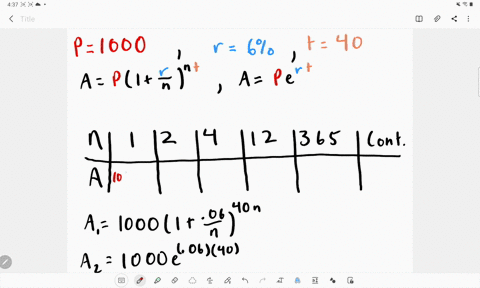 4:37
Title
P=1000 , r = 6% , t = 40
A = P(1+r/n)^nt , A = Pe^rt
n | 1 | 2 | 4 | 12 | 365 | Cont.
A | 10
A₁ = 1000(1+.06/n)^40n
A₂ = 1000e^(.06)(40)